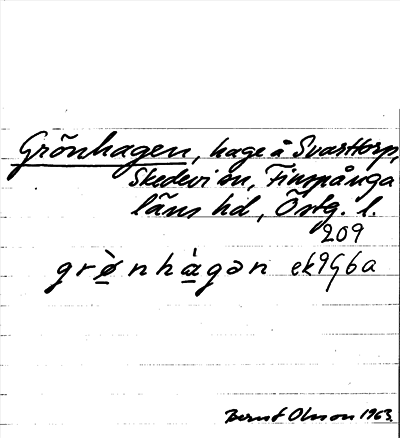 Grönhagen, hage å Svarttorp,
Skedevi sn, Finspånga
läns hd, Östg. l.
209
grø̀nhàgən ek9G6a
Bernt Olsson 1963